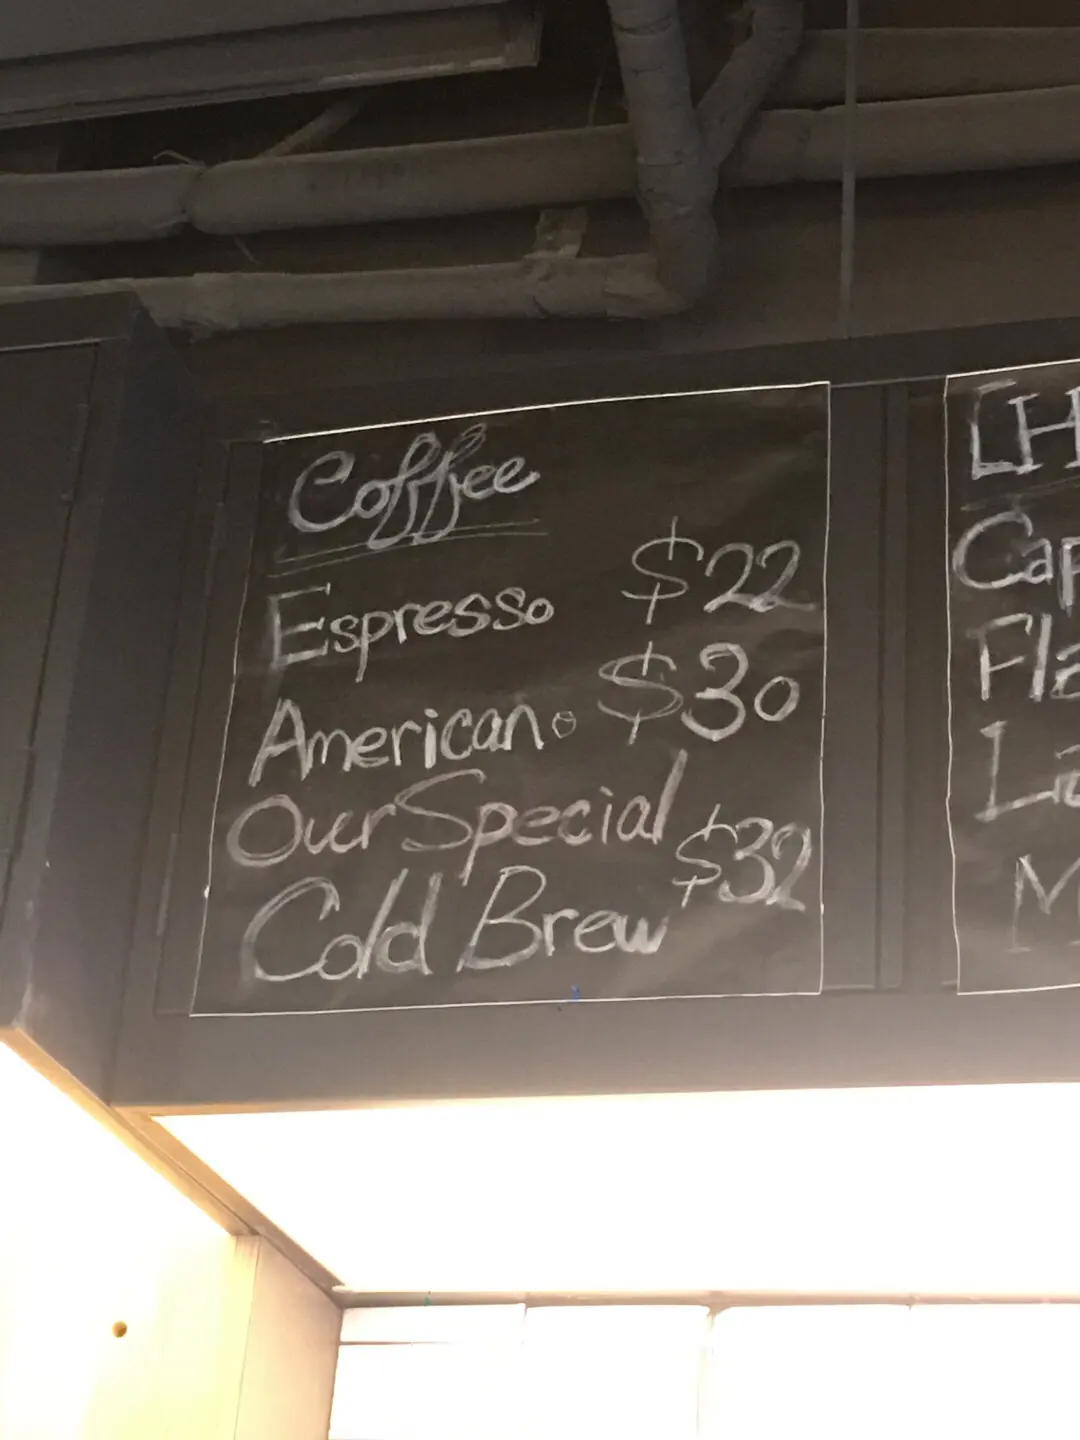 Coffee
Espresso $22
Americano $30
Our Special
Cold Brew $32
[H
Cap
Fla
La
M